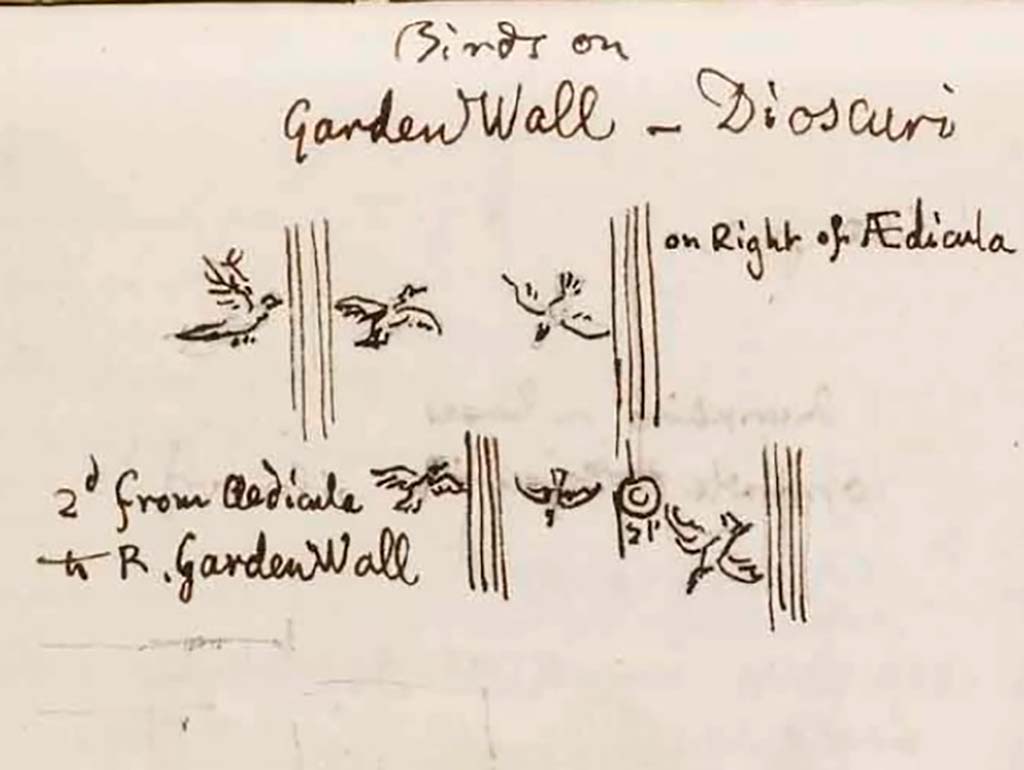 Birds on
Garden Wall - Dioscuri
on Right of Ædicula
2d from Aedicula
to R. Garden Wall